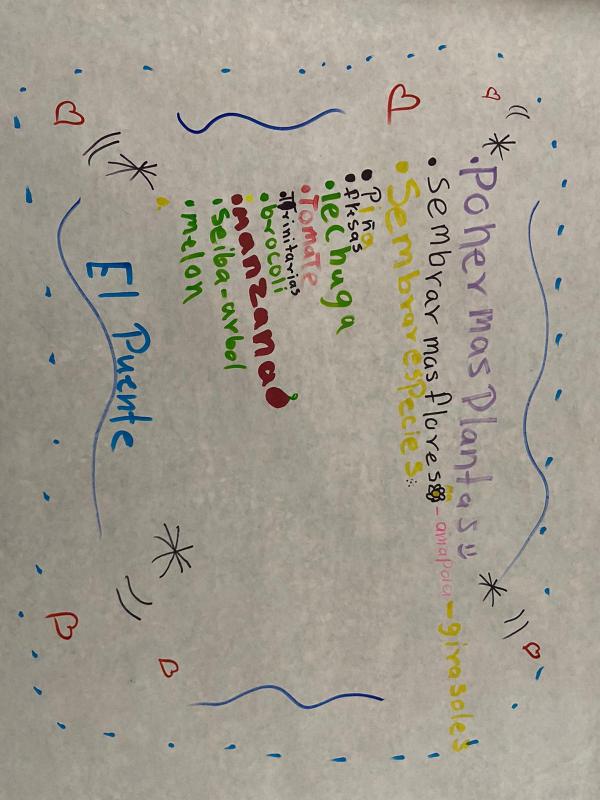 • Poner mas Plantas
• Sembrar mas flores - amapola - girasoles
• Sembrar especies:
• Piña
• fresas
• lechuga
• Tomate
• Trinitarias
• brocoli
• manzana
• seiba-arbol
• melon
El Puente